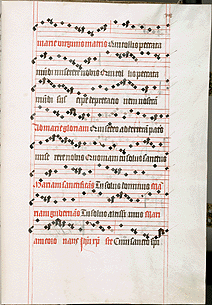 marie virginis matris Qui tollis peccata
mundi miserere nobis Qui tol lis peccata
mundi sus cipe deprecatio nem nostra
ad marie gloriam Qui sedes ad dexteram patris
mise rere nobis Quoniam tu solus sanctus
Mariam sanctificans Tu solus dominus Ma
riam gubernans Tu solus altissi mus Mari
am coro nans Cum sancto spu